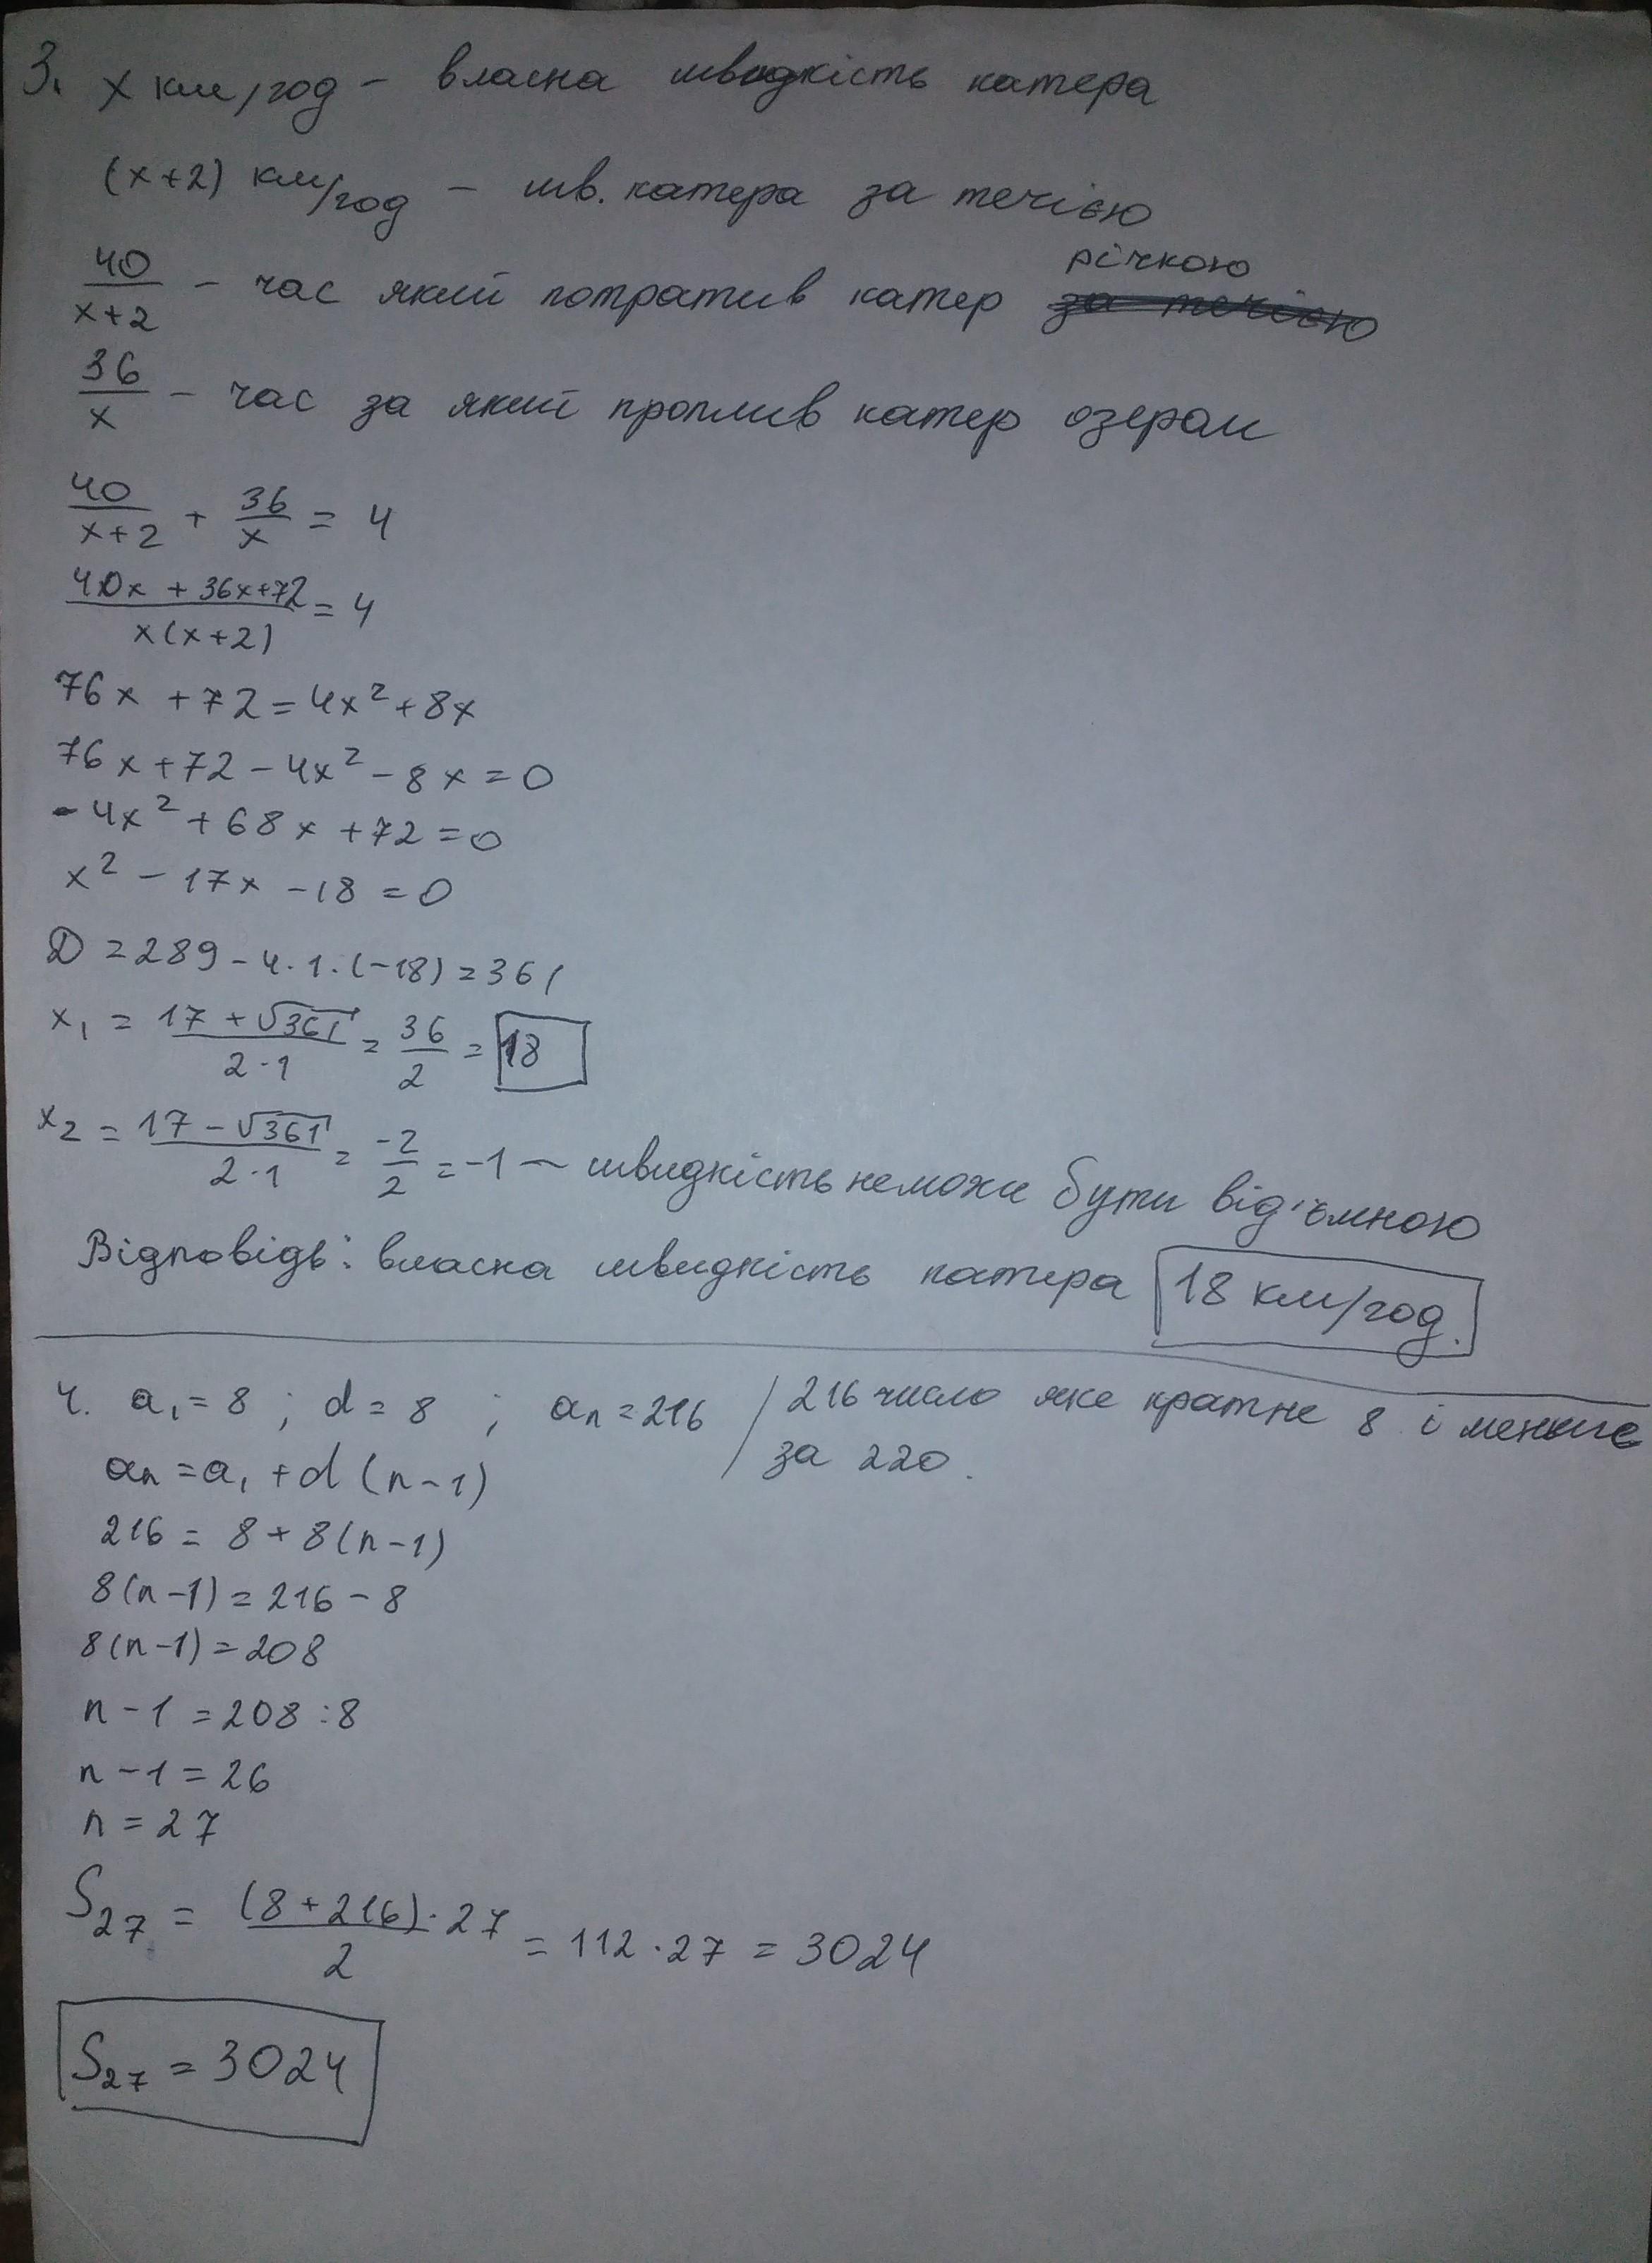 3. x км/год - власна швидкість катера
(x+2) км/год - шв. катера за течією
річкою
40/(x+2) - час який потратив катер за течією
36/x - час за який проплив катер озером
40/(x+2) + 36/x = 4
(40x + 36x+72)/(x(x+2)) = 4
76x + 72 = 4x² + 8x
76x + 72 - 4x² - 8x = 0
-4x² + 68x + 72 = 0
x² - 17x - 18 = 0
D = 289 - 4·1·(-18) = 361
x₁ = (17 + √361)/(2·1) = 36/2 = 18
x₂ = (17 - √361)/(2·1) = -2/2 = -1 - швидкість неможе бути від'ємною
Відповідь: власна швидкість катера 18 км/год.
4. a₁ = 8 ; d = 8 ; aₙ = 216 / 216 число яке кратне 8 і менше
за 220.
aₙ = a₁ + d(n-1)
216 = 8 + 8(n-1)
8(n-1) = 216 - 8
8(n-1) = 208
n - 1 = 208 : 8
n - 1 = 26
n = 27
S₂₇ = (8 + 216)·27/2 = 112·27 = 3024
S₂₇ = 3024